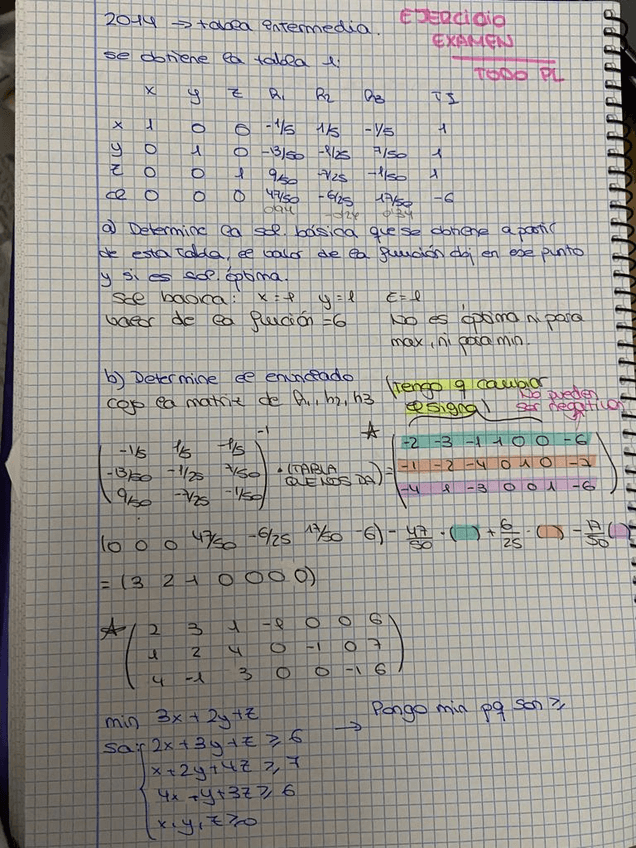 2014 → tabla intermedia. EJERCICIO
EXAMEN
TODO PL
se obtiene la tabla 1:
x y z h1 h2 h3 TI
x 1 0 0 -1/5 1/5 -1/5 1
y 0 1 0 -13/50 -1/25 7/50 1
z 0 0 1 9/50 -7/25 -1/50 1
ce 0 0 0 47/50 -6/25 17/50 -6
0'94 -0'24 0'34
a) Determine la sol. básica que se obtiene a partir
de esta tabla, el valor de la función obj en ese punto
y si es sol. óptima.
Sol basica: x=1 y=1 z=1
valor de la función =6 No es óptima ni para
max, ni para min.
b) Determine el enunciado (tengo q cambiar
cojo la matriz de h1, h2, h3 el signo) No pueden
ser negativos
-1/5 1/5 -1/5 -1 -2 -3 -1 1 0 0 -6
-13/50 -1/25 7/50 · (TABLA
QUE NOS DA) = -1 -2 -4 0 1 0 -7
9/50 -7/25 -1/50 -4 1 -3 0 0 1 -6
(0 0 0 47/50 -6/25 17/50 -6) - 47/50 · ( ) + 6/25 · ( ) - 17/50 ( )
= (3 2 1 0 0 0 0)
2 3 1 -1 0 0 6
1 2 4 0 -1 0 7
4 -1 3 0 0 -1 6
min 3x + 2y + z → Pongo min pq son ≥
sa: 2x + 3y + z ≥ 6
x + 2y + 4z ≥ 7
4x - y + 3z ≥ 6
x, y, z ≥ 0